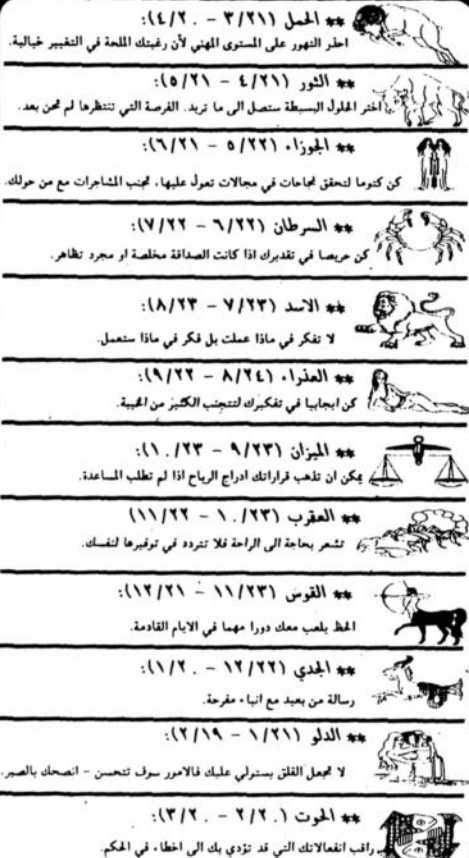 ** الحمل (٣/٢١ - ٤/٢٠):
احذر التهور على المستوى المهني لأن رغبتك الملحة في التغيير خيالية.
** الثور (٤/٢١ - ٥/٢١):
اختر الحلول البسيطة ستصل الى ما تريد. الفرصة التي تنتظرها لم تحن بعد.
** الجوزاء (٥/٢٢ - ٦/٢١):
كن كتوما لتحقق نجاحات في مجالات تعول عليها، تجنب المشاجرات مع من حولك.
** السرطان (٦/٢٢ - ٧/٢٢):
كن حريصا في تقديرك اذا كانت الصداقة مخلصة او مجرد تظاهر.
** الاسد (٧/٢٣ - ٨/٢٣):
لا تفكر في ماذا عملت بل فكر في ماذا ستعمل.
** العذراء (٨/٢٤ - ٩/٢٢):
كن ايجابيا في تفكيرك لتتجنب الكثير من الخيبة.
** الميزان (٩/٢٣ - ١٠/٢٣):
يمكن ان تذهب قراراتك ادراج الرياح اذا لم تطلب المساعدة.
** العقرب (١٠/٢٣ - ١١/٢٢)
تشعر بحاجة الى الراحة فلا تتردد في توفيرها لنفسك.
** القوس (١١/٢٣ - ١٢/٢١):
الحظ يلعب معك دورا مهما في الايام القادمة.
** الجدي (١٢/٢٢ - ١/٢٠):
رسالة من بعيد مع انباء مفرحة.
** الدلو (١/٢١ - ٢/١٩):
لا تجعل القلق يستولي عليك فالامور سوف تتحسن - انصحك بالصبر.
** الحوت (٢/٢٠ - ٣/٢٠):
راقب انفعالاتك التي قد تؤدي بك الى اخطاء في الحكم.